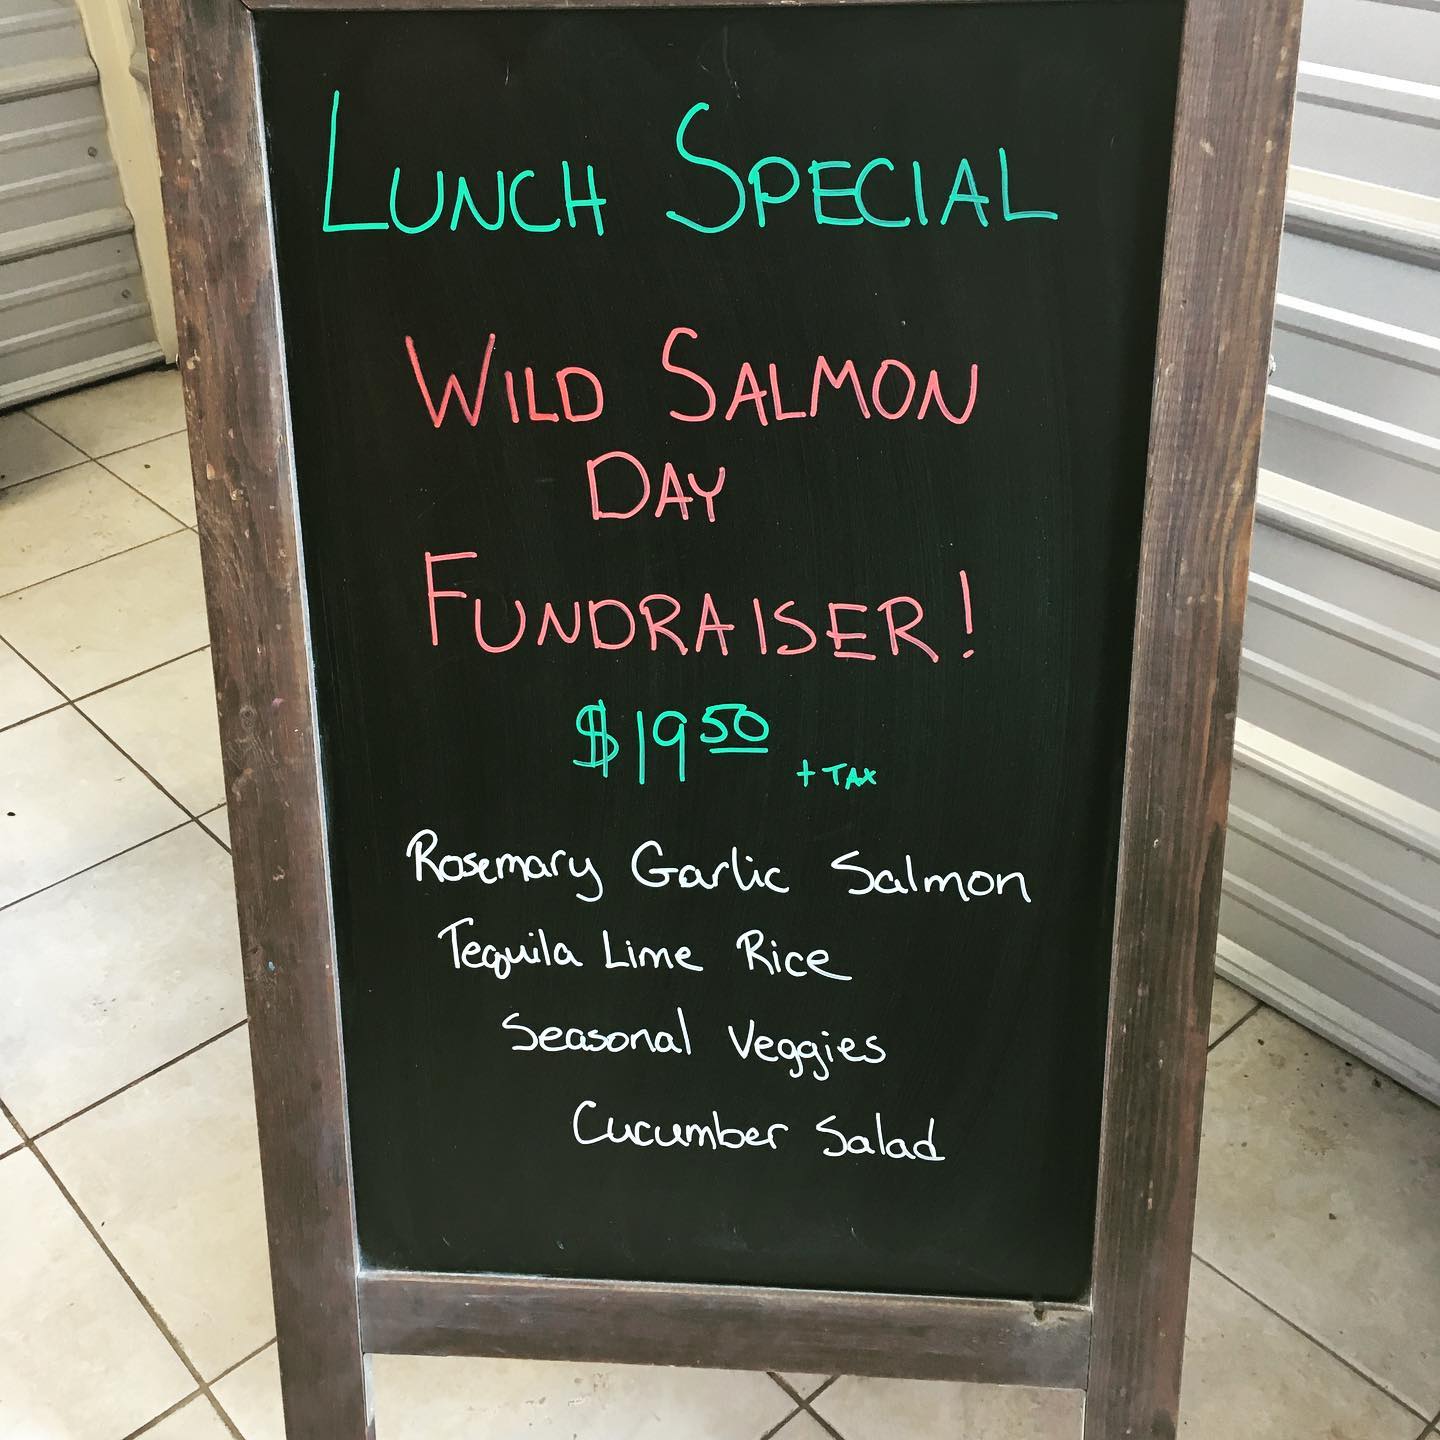 LUNCH SPECIAL
WILD SALMON
DAY
FUNDRAISER!
$19 50 + TAX
Rosemary Garlic Salmon
Tequila Lime Rice
Seasonal Veggies
Cucumber Salad